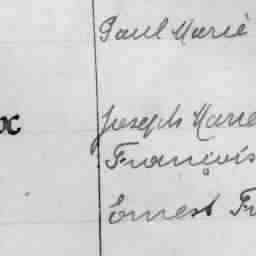 Paul Marie
x
Joseph Marie
François
Ernest Fr